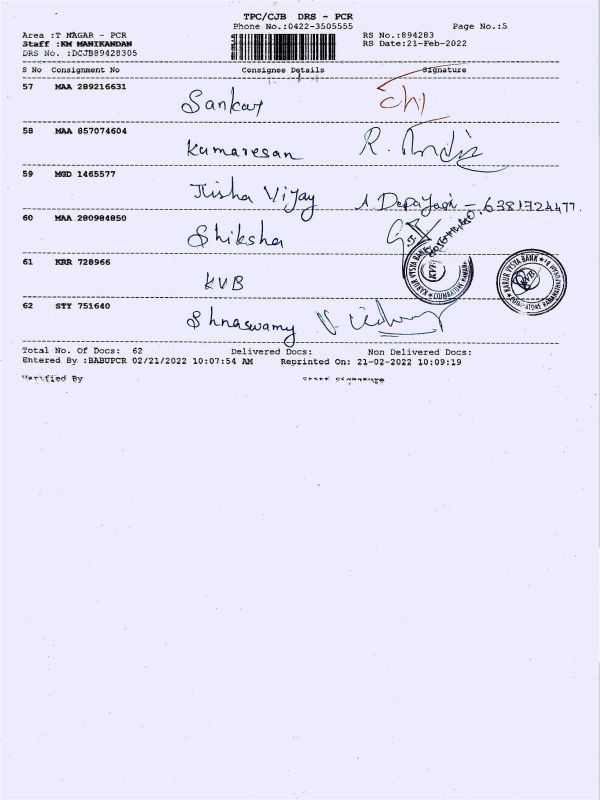 TPC/CJB DRS - PCR
Phone No.:0422-3505555
Page No.:5
Area :T NAGAR - PCR
RS No.:894283
Staff :KM MANIKANDAN
RS Date:21-Feb-2022
DRS No. :DCJB89428305
S No Consignment No Consignee Details Signature
57 MAA 289216631
Sankar
58 MAA 857074604
Kumaresan R.
59 MGD 1465577
Jisha Vijay - 6381724477
60 MAA 280984850
Shiksha
61 KRR 728966
KVB
KARUR VYSYA BANK
KVB
KARUR VYSYA BANK
KVB
62 STY 751640
Shnaswamy
Total No. Of Docs: 62 Delivered Docs: Non Delivered Docs:
Entered By :BABUPCR 02/21/2022 10:07:54 AM Reprinted On: 21-02-2022 10:09:19
Verified By